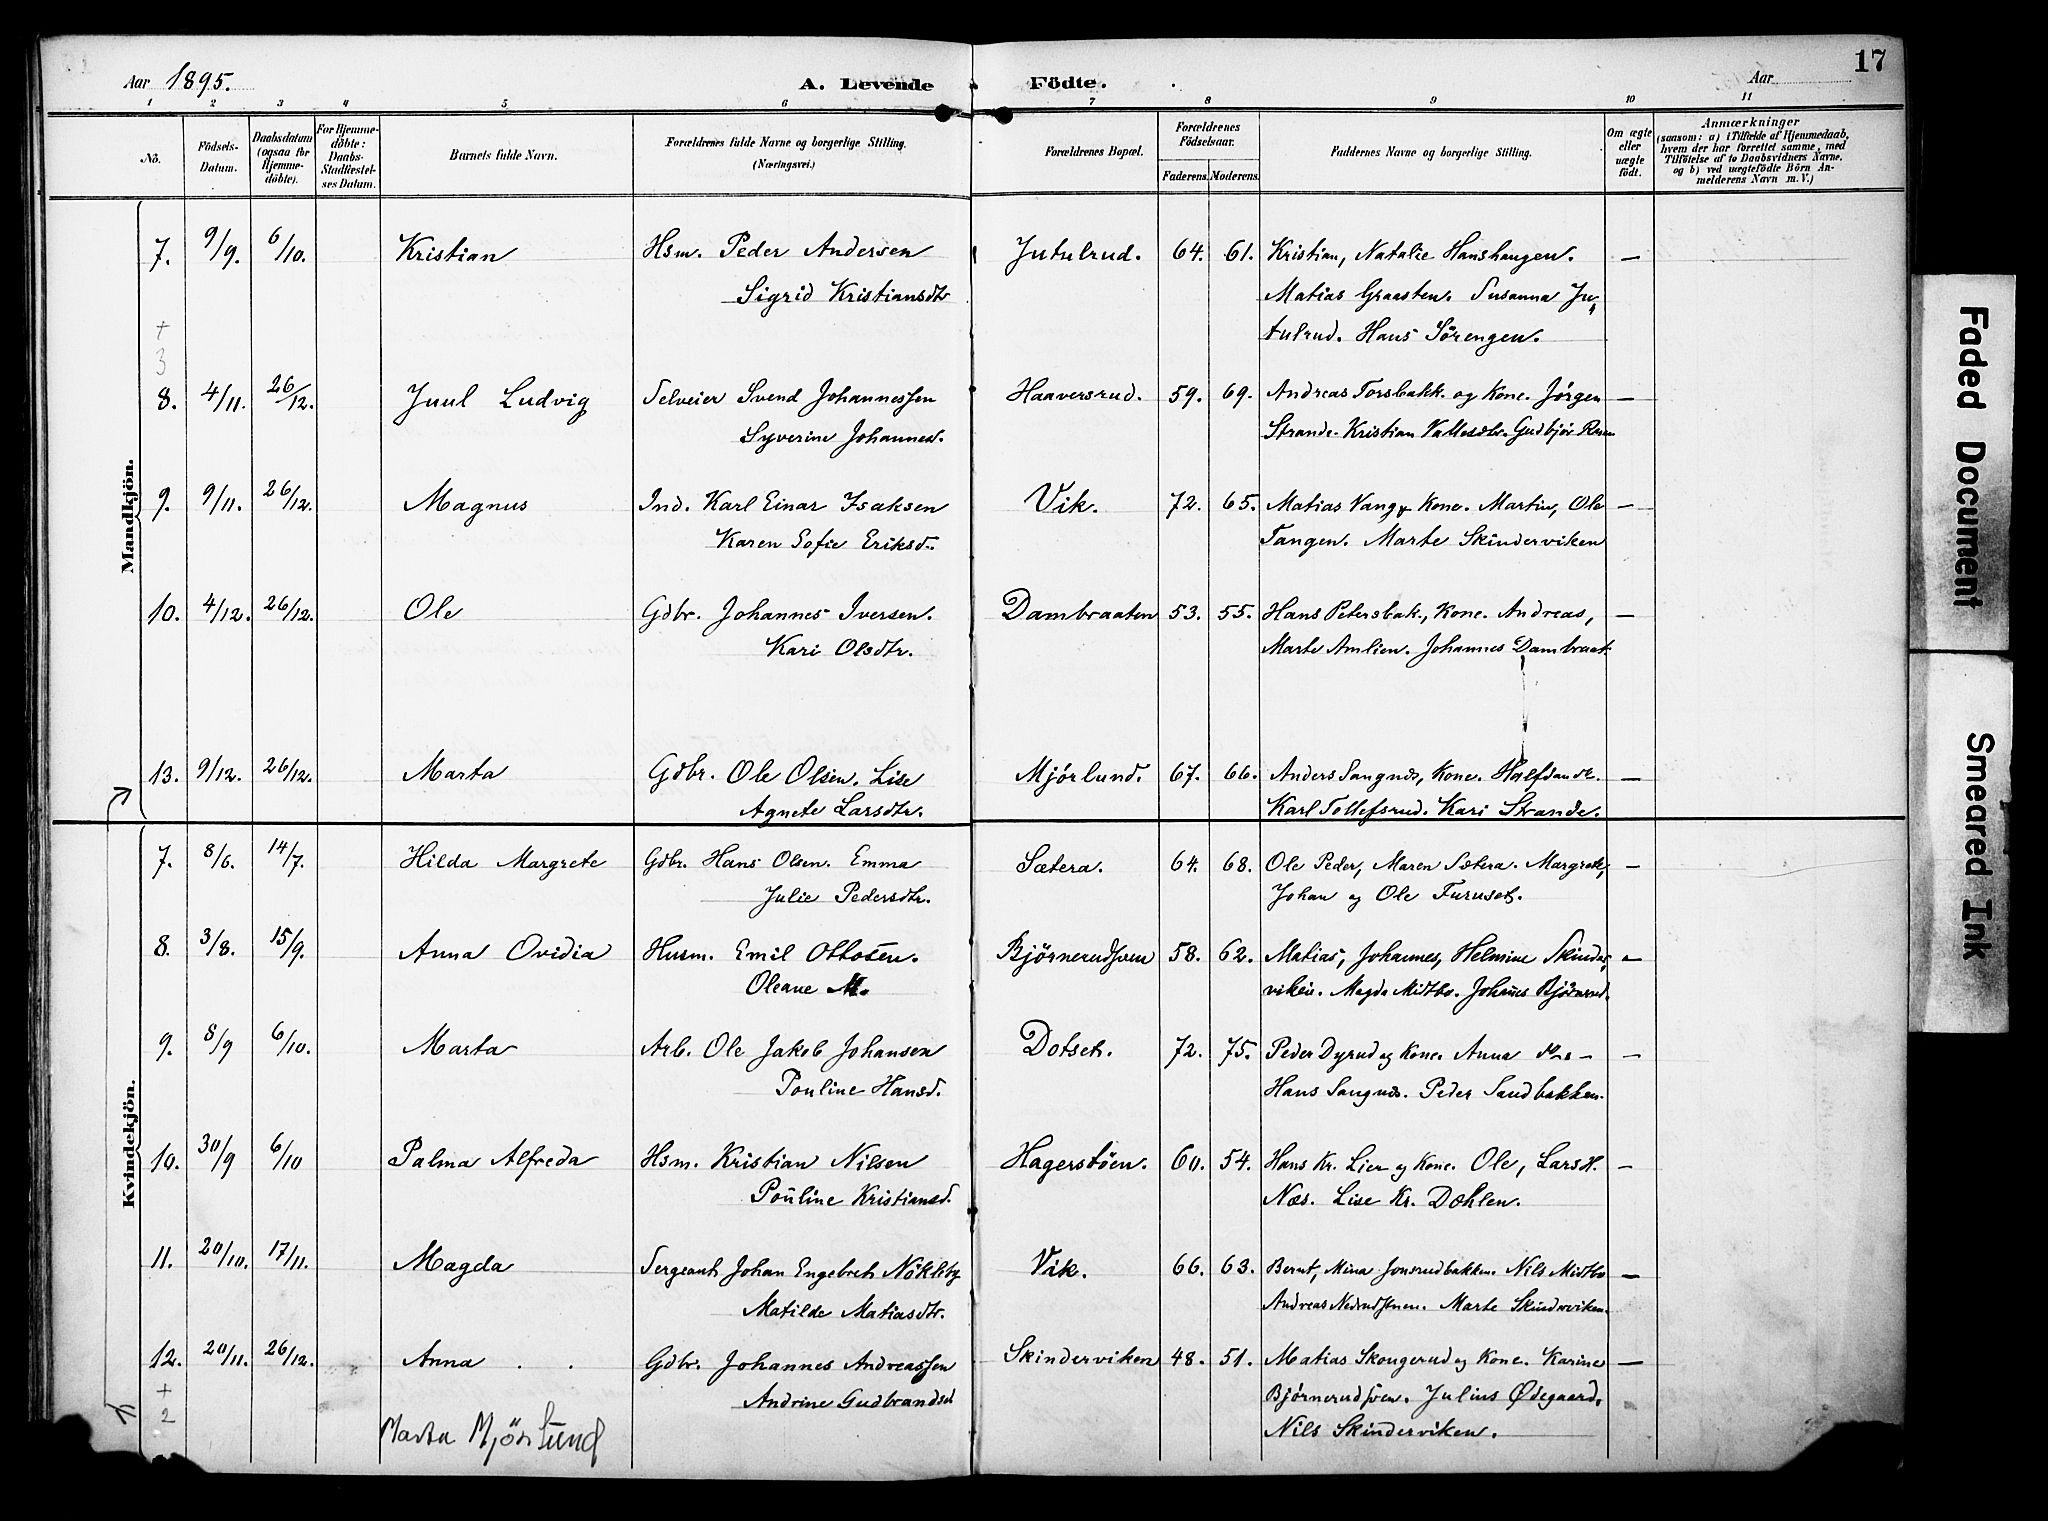 17
Aar 1895. A. Levende Födte. Aar
1 2 3 4 5 6 7 8 9 10 11
No. Födsels-Datum. Daabsdatum (ogsaa for Hjemme-döbte). For Hjemme-döbte: Daabs-Stadfæstel-ses Datum. Barnets fulde Navn. Forældrenes fulde Navne og borgerlige Stilling. (Næringsvei.) Forældrenes Bopæl. Forældrenes Födselsaar. Faderens. Moderens. Faddernes Navne og borgerlige Stilling. Om ægte eller uægte födt. Anmærkninger (saasom: a) i Tilfælde af Hjemmedaab, hvem der har forrettet samme, med Tilföielse af to Daabsvidners Navne, og b) ved uægtefödte Börn An-melderens Navn m. V.)
Mandkjön.
7. 9/9. 6/10. Kristian Hsm. Peder Andersen Jutulrud. 64. 61. Kristian, Natalie Hanshaugen. —
Sigrid Kristiansdtr Matias Graasten. Susanna Ju-
+ tulrud. Hans Sörengen.
3
8. 4/11. 26/12. Juul Ludvig Selveier Svend Johannessen Haaversrud. 59. 69. Andreas Torsbakk. og Kone. Jørgen —
Syverine Johannesd. Strande. Kristian
9. 9/11. 26/12. Magnus Ind. Karl Einar Isaksen Vik. 72. 65. Matias Vang & Kone. Martin, Ole —
Karen Sofie Eriksd. Tangen. Marte Skinderviken
10. 4/12. 26/12. Ole Gdbr. Johannes Iversen. Dambraaten 53. 55. Hans Petersbak., Kone. Andreas, —
Kari Olsdtr. Marte Amlien. Johannes Dambraat.
13. 9/12. 26/12. Marta Gdbr. Ole Olsen. Lise Mjørlund. 67. 66. Anders Sangnæs, Kone. —
Agnete Larsdtr. Karl Tollefsrud. Kari Strande.
Kvindekjön.
7. 8/6. 14/7. Hilda Margrete Gdbr. Hans Olsen. Emma Sætera. 64. 68. Ole Peder, Maren Sætera. Margrete, —
Julie Pedersdtr. Johan og Ole Furuset.
8. 3/8. 15/9. Anna Ovidia Husm. Emil Ottosen. Bjørnerudsven 58. 62. Matias, Johannes, Helmine Skinder- —
Oleane M. viken. Magda Midtbo. Johannes Bjørnerud.
9. 8/9 6/10. Marta Arb. Ole Jakob Johansen Dotset. 72. 75. Peder Dyrud og Kone. Anna —
Pouline Hansd. Hans Sangnæs. Peder Sandbakken.
10. 30/9 6/10 Palma Alfreda Hsm. Kristian Nilsen Hagerstöen. 60. 54. Hans Kr. Lier og Kone. Ole, Lars H. —
Pouline Kristiansd. Næs. Lise Kr. Dæhlen.
11. 20/10. 17/11. Magda Sergeant Johan Engebret Nökleby Vik. 66. 63. Bernt, Mina Jonsrudbakken. Nils Midtbo —
Matilde Matiasdtr. Andreas Marte Skinderviken.
12. 20/11. 26/12. Anna Gdbr. Johannes Andreassen Skinderviken 48. 51. Matias Skougerud og Kone. Karine —
+ Andrine Gudbrandsd Bjørnerudsven. Julius Ødegaard.
2 Marta Mjörlund Nils Skinderviken.
Faded Document
Smeared Ink